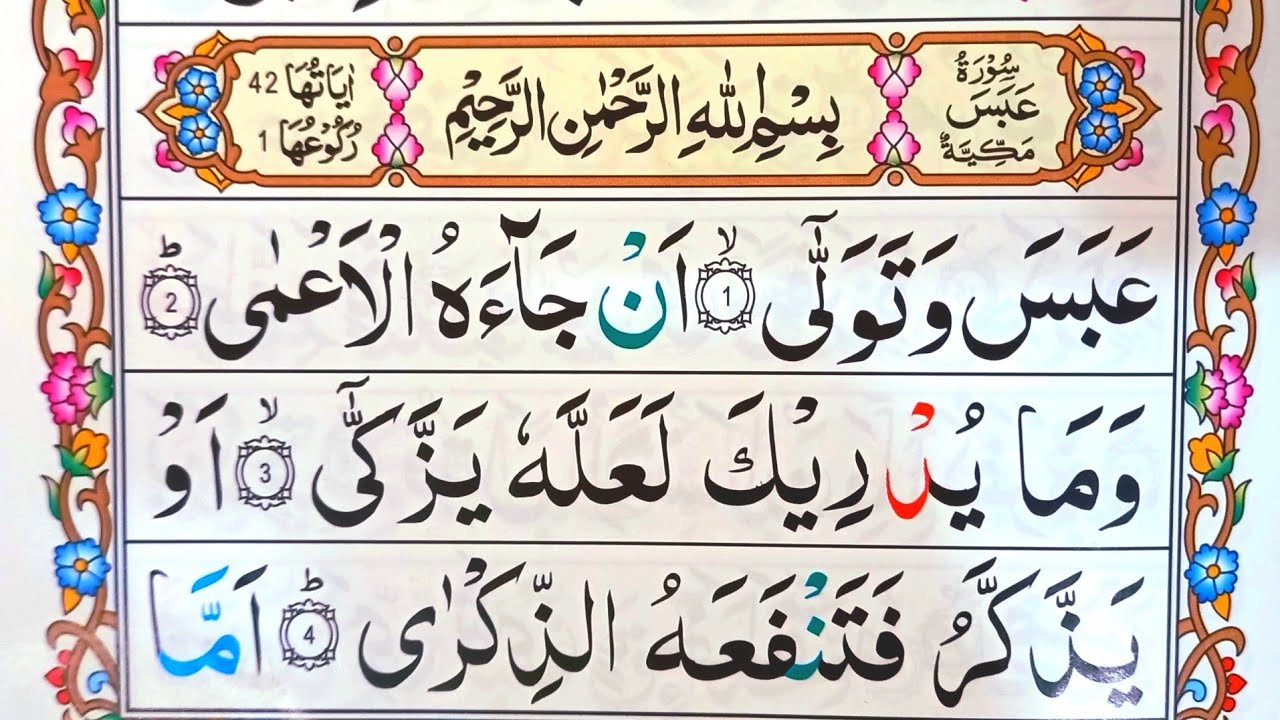 سُوْرَةُ عَبَسَ مَكِّيَّةٌ
بِسْمِ اللّٰهِ الرَّحْمٰنِ الرَّحِيْمِ
اٰيَاتُهَا 42
رُكُوْعُهَا 1
عَبَسَ وَتَوَلّٰٓى ۙ1 اَنْ جَآءَهُ الْاَعْمٰى ؕ2
وَمَا يُدْرِيْكَ لَعَلَّهٗ يَزَّكّٰٓى ۙ3 اَوْ
يَذَّكَّرُ فَتَنْفَعَهُ الذِّكْرٰى ؕ4 اَمَّا